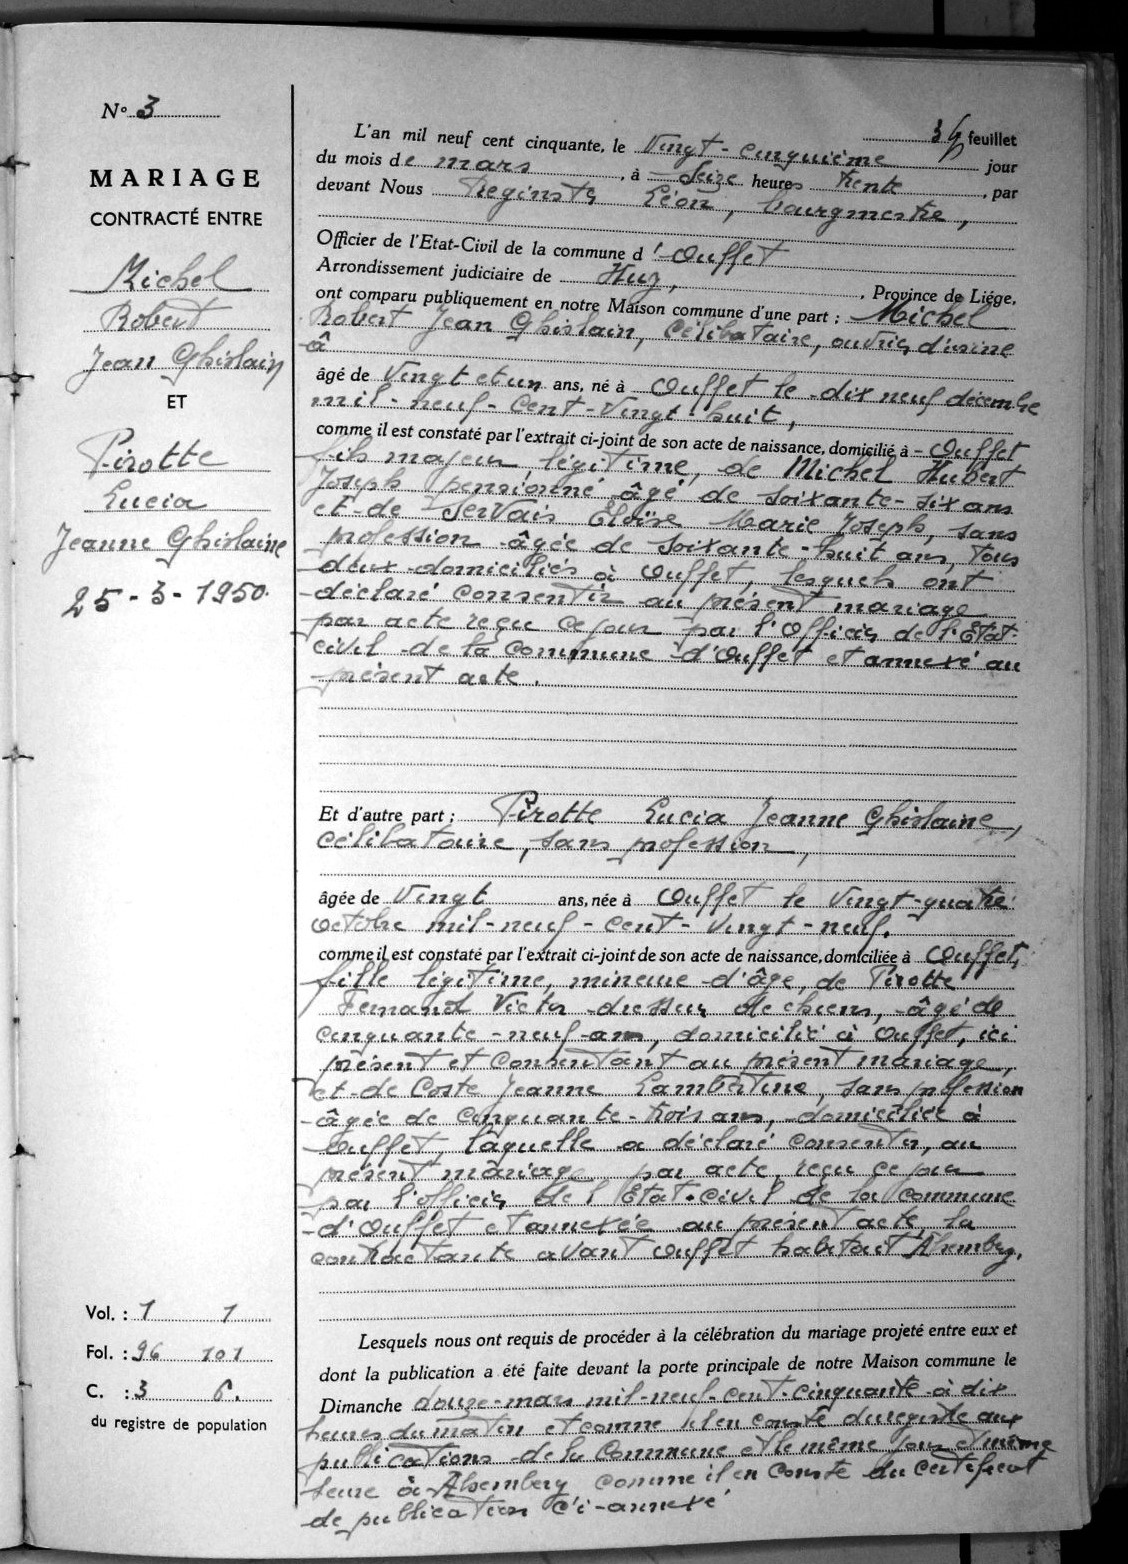 N° 3
MARIAGE
CONTRACTÉ ENTRE
Michel
Robert
Jean Ghislain
ET
Pirotte
Lucia
Jeanne Ghislaine
25-3-1950.
Vol. : 1 1
Fol. : 96 101
C. : 3 6.
du registre de population
feuillet
L'an mil neuf cent cinquante, le Vingt-cinquième jour
du mois de mars, à Seize heures trente, par
devant Nous Léon, bourgmestre,
Officier de l'Etat-Civil de la commune d'Ouffet
Arrondissement judiciaire de Huy, , Province de Liége,
ont comparu publiquement en notre Maison commune d'une part ; Michel
Robert Jean Ghislain, célibataire, ouvrier d'usine
à
âgé de Vingt et un ans, né à Ouffet le dix neuf décembre
mil-neuf-cent-Vingt-huit,
comme il est constaté par l'extrait ci-joint de son acte de naissance, domicilié à Ouffet
fils majeur, légitime, de Michel Hubert
Joseph pensionné âgé de soixante-six ans
et de Servais Eloïse Marie Joseph, sans
profession âgée de soixante-huit ans, tous
deux domiciliés à Ouffet, lesquels ont
déclaré consentir au présent mariage
par acte reçu ce jour par l'Officier de l'Etat-
civil de la commune d'Ouffet et annexé au
présent acte.
Et d'autre part ; Pirotte Lucia Jeanne Ghislaine,
célibataire, sans profession,
âgée de Vingt ans, née à Ouffet le Vingt-quatre
octobre mil-neuf-cent-vingt-neuf.
comme il est constaté par l'extrait ci-joint de son acte de naissance, domiciliée à Ouffet,
fille légitime, mineure d'âge, de Pirotte
Fernand Victor dresseur de chiens, âgé de
cinquante-neuf ans, domicilié à Ouffet, ici
présent et consentant au présent mariage,
et de Coste Jeanne Lambertine, sans profession
âgée de cinquante-trois ans, domiciliée à
Ouffet, laquelle a déclaré consentir, au
présent mariage par acte reçu ce jour
par l'officier de l'Etat-civil de la commune
d'Ouffet et annexée au présent acte, la
contractante avant Ouffet habitait Alsemberg.
Lesquels nous ont requis de procéder à la célébration du mariage projeté entre eux et
dont la publication a été faite devant la porte principale de notre Maison commune le
Dimanche douze mars mil-neuf-cent-cinquante à dix
heures du matin et comme il en conste du registre aux
publications de la Commune et le même jour et même
heure à Alsemberg comme il en conste du certificat
de publication ci-annexé